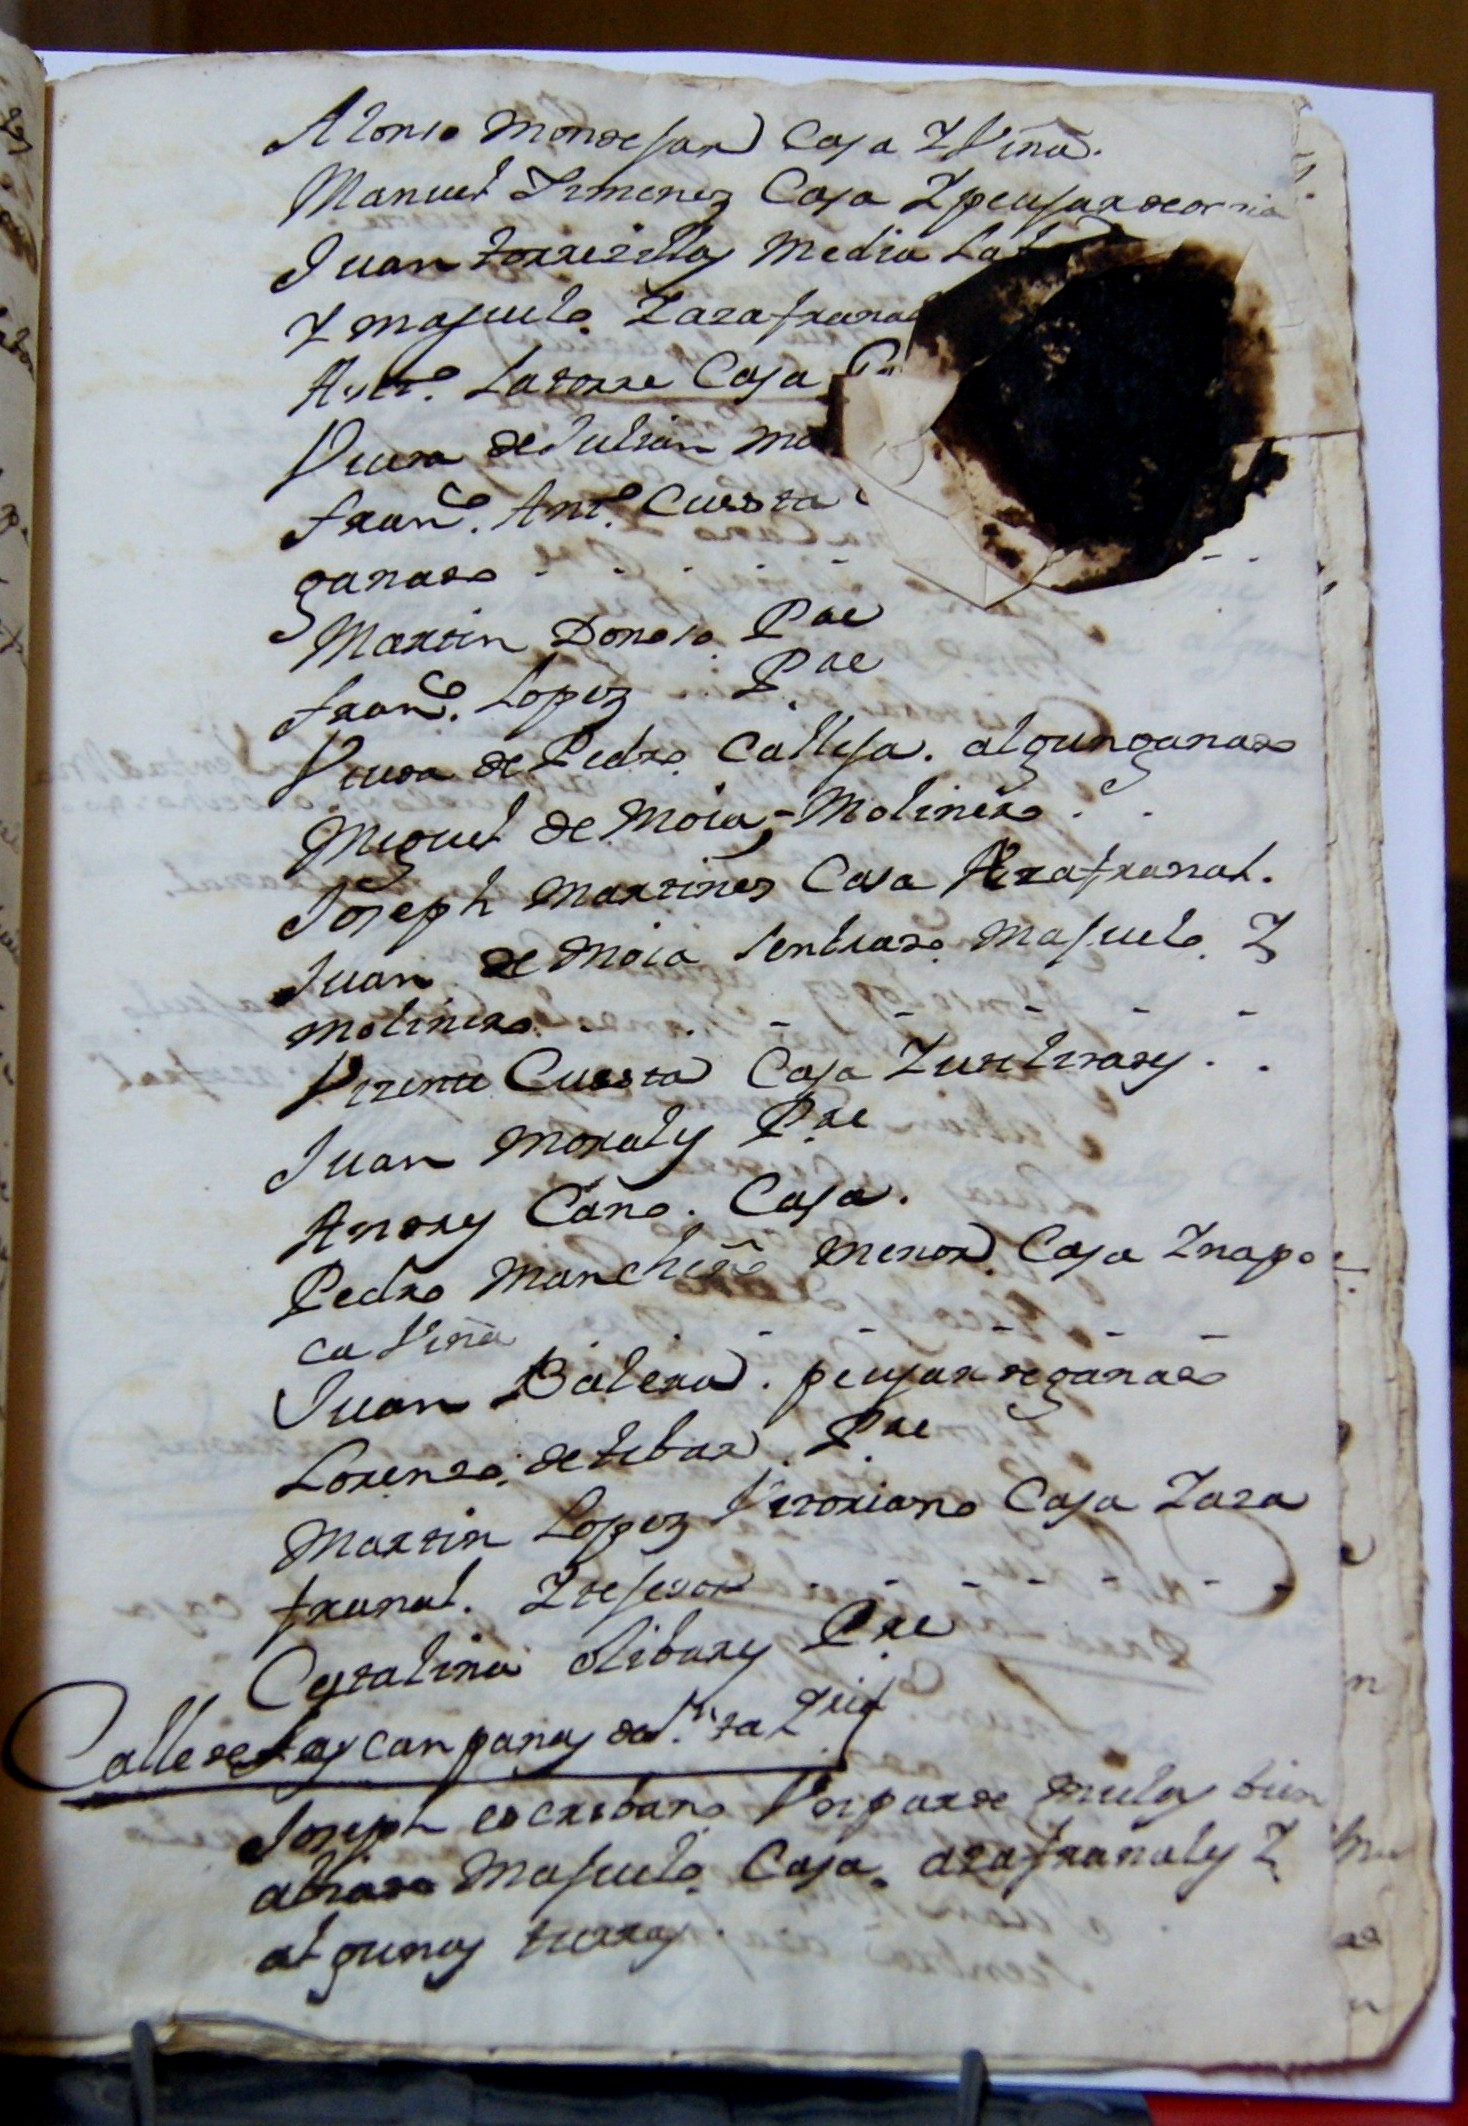 Alonso Mondejar Casa Y Viña.
Manuel Ximenez Casa Y peujar de
Juan torrezillas Media
Y Majuelo. Y azafranal
Antt.o Latorre Casa
Viuda de Julian
fran.co Ant.o Cuesta
ganado - - - - -
Martin Donoso P.re
fran.co Lopez P.re
Viuda de Pedro Calleja. algun ganado
Miguel de Moia, - Molinero . .
Joseph Martinez Casa Azafranal.
Juan de Moia senbrado Majuelo Y
molinero. . . - - - - -
Vizente Cuesta Casa Y . .
Juan Morales P.re
Andres Cano. Casa.
Pedro Mancheño menor Casa Y na po
ca Viña . . - - - - -
Juan Balera. peujar de ganado
Lorenzo de tebar. P.re
Martin Lopez Vitoriano Casa Y aza
franal. Y tesedor - - - - - - -
Catalina olibares P.re
Calle de las canpanas de la S.ta
Joseph escribano Vn par de Mulas bien
abiado Majuelo Casa. azafranales Y
algunas tierras.